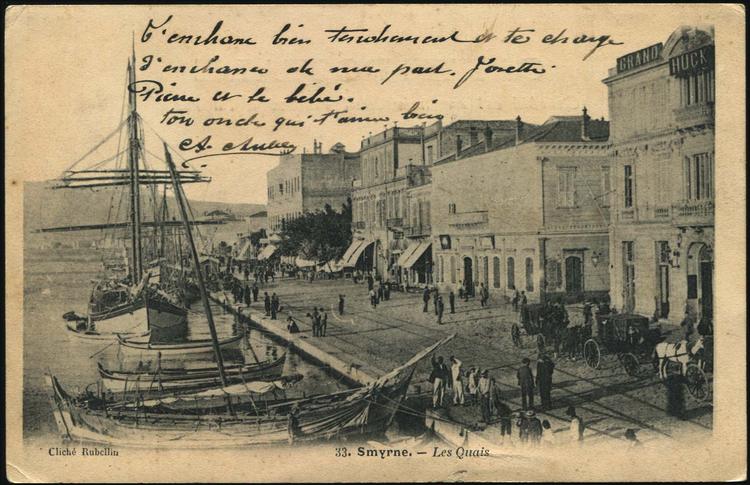 T'embrasse bien tendrement et te charge
d'embrasser de ma part. Josette
Pierre et le bébé.
ton oncle qui t'aime bien
GRAND
HUCK
Cliché Rubellin
33. Smyrne. — Les Quais